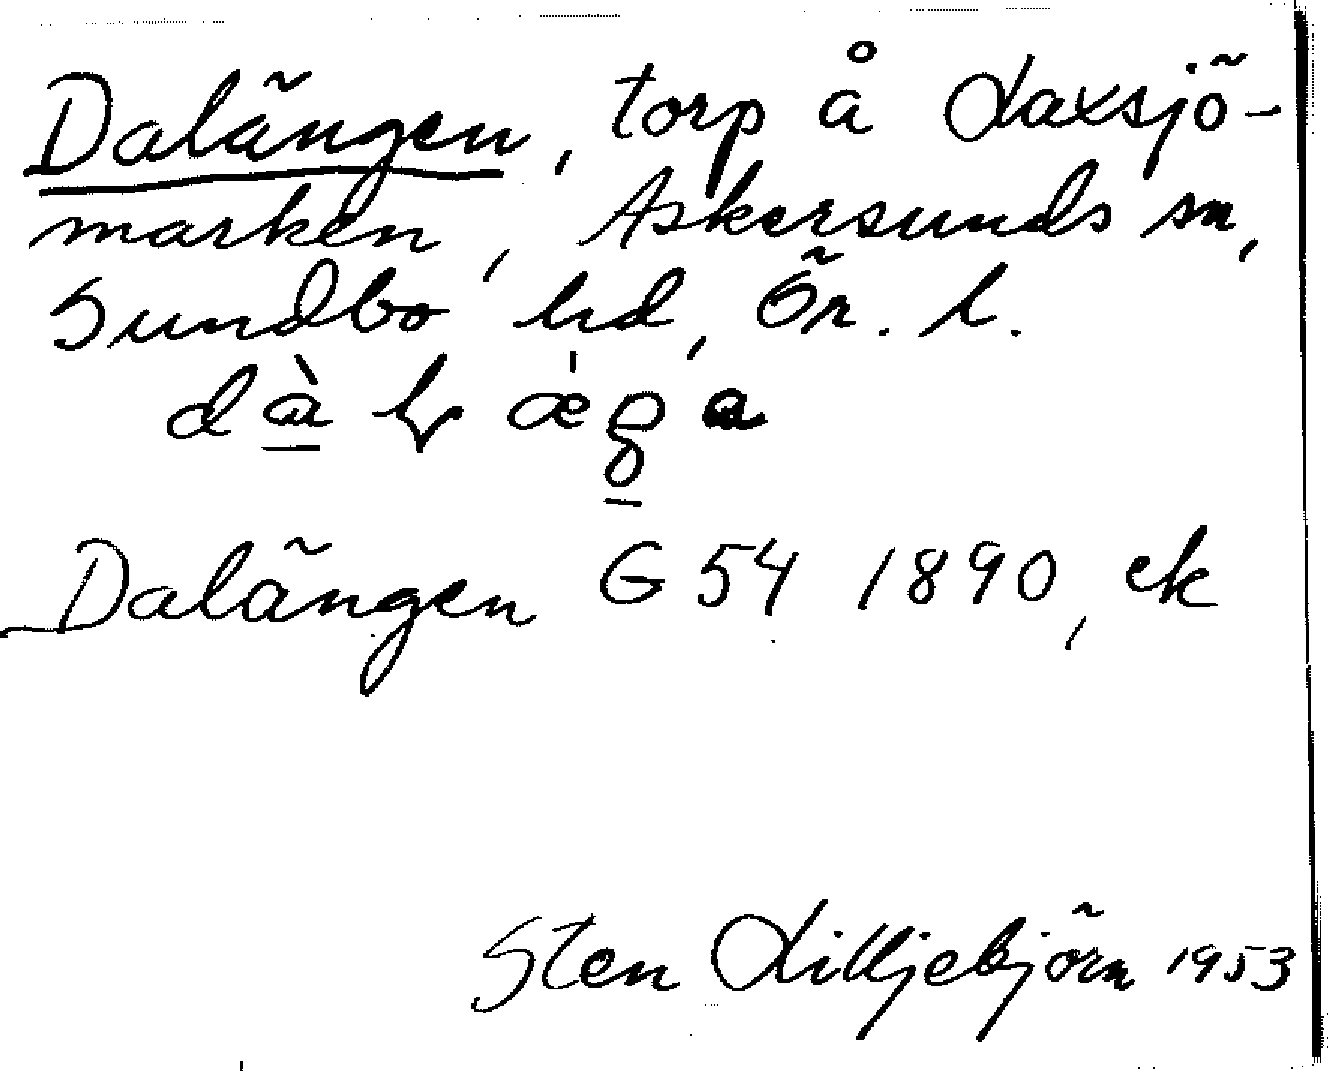 Dalängen, torp å Laxsjö-
marken, Askersunds sn,
Sundbo hd, Ör. l.
Dalängen G 54 1890, ek
Sten Lilljebjörn 1953